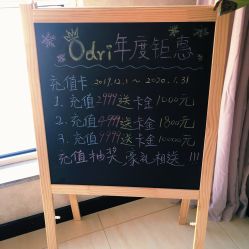 Odri年度钜惠
充值卡 2019.12.1 ~ 2020.1.31
1. 充值2999送卡金1000元
2. 充值4999送卡金1800元
3. 充值9999送卡金10000元
充值抽奖,豪礼相送!!!